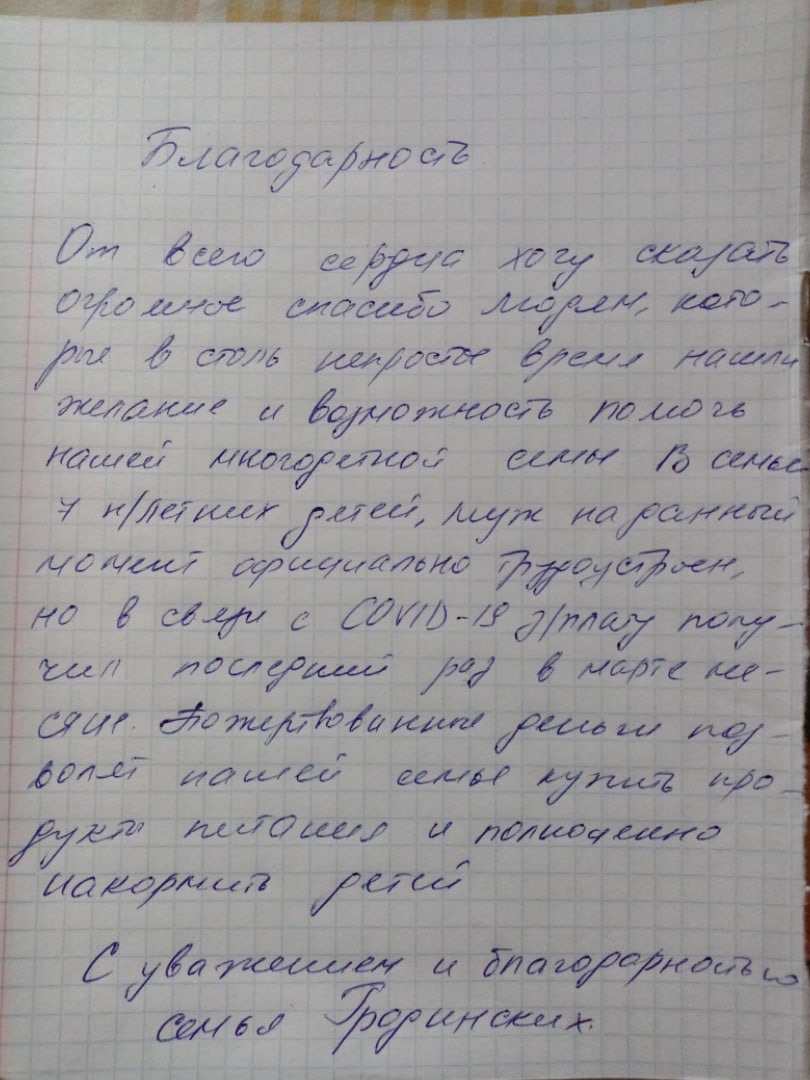 Благодарность
От всего сердца хочу сказать
огромное спасибо людям, кото-
рые в столь непростое время нашли
желание и возможность помочь
нашей многодетной семье В семье
7 н/летних детей, муж на данный
момент официально трудоустроен,
но в связи с COVID-19 з/плату полу-
чил последний раз в марте ме-
сяце. Пожертвованные деньги поз-
волят нашей семье купить про-
дукты питания и полноценно
накормить детей
С уважением и благодарностью
семья Гродинских.